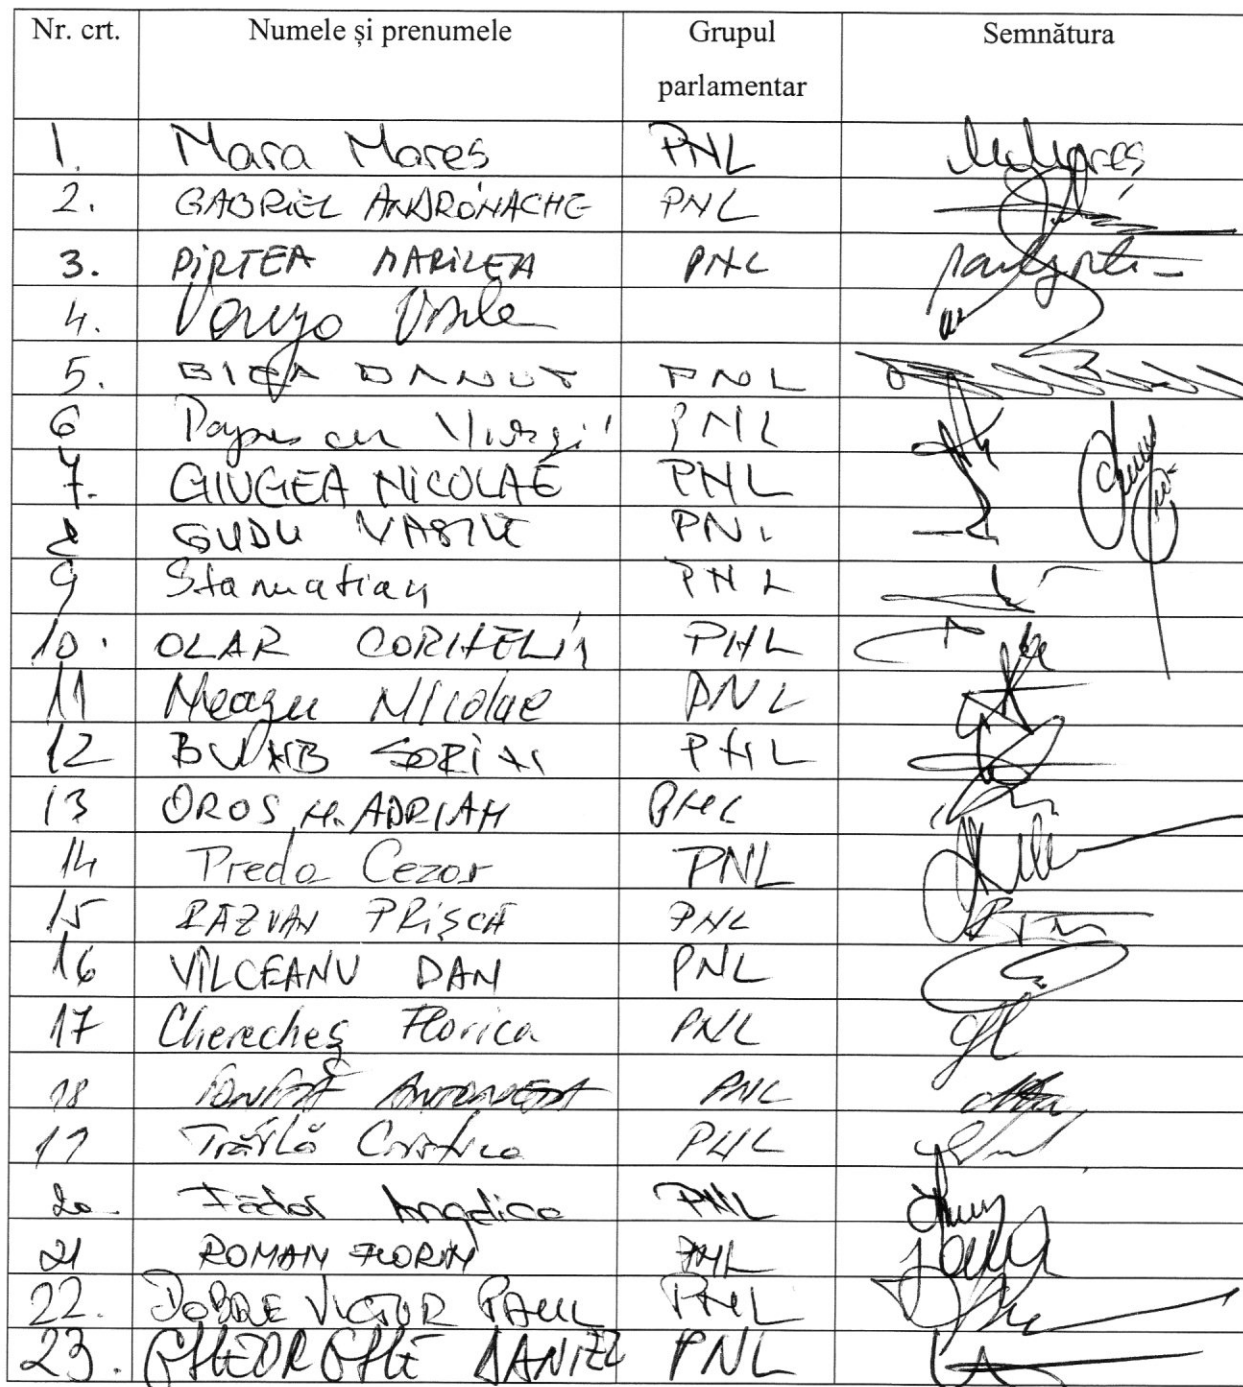 Nr. crt. Numele și prenumele Grupul parlamentar Semnătura
1. Mara Mares PNL
2. GABRIEL ANDRONACHE PNL
3. PIRTEA MARILEA PNL
4. Varga Vasile
5. BICA DANUT PNL
6 Popescu Virgil PNL
7. GIUGEA NICOLAE PNL
8 GUDU VASILE PNL
9 Stamatian PNL
10. OLAR CORNELIA PNL
11 Neagu Nicolae PNL
12 BUMB SORIN PNL
13 OROS N. ADRIAN PNL
14 Preda Cezar PNL
15 RĂZVAN PRIȘCĂ PNL
16 VÎLCEANU DAN PNL
17 Cherecheș Florica PNL
18 IONIȚĂ ANTOANETA PNL
19 Trăilă Cristina PNL
20 Fădor Angelica PNL
21 ROMAN FLORIN PNL
22. DOBRE VICTOR PAUL PNL
23. GHEORGHE DANIEL PNL